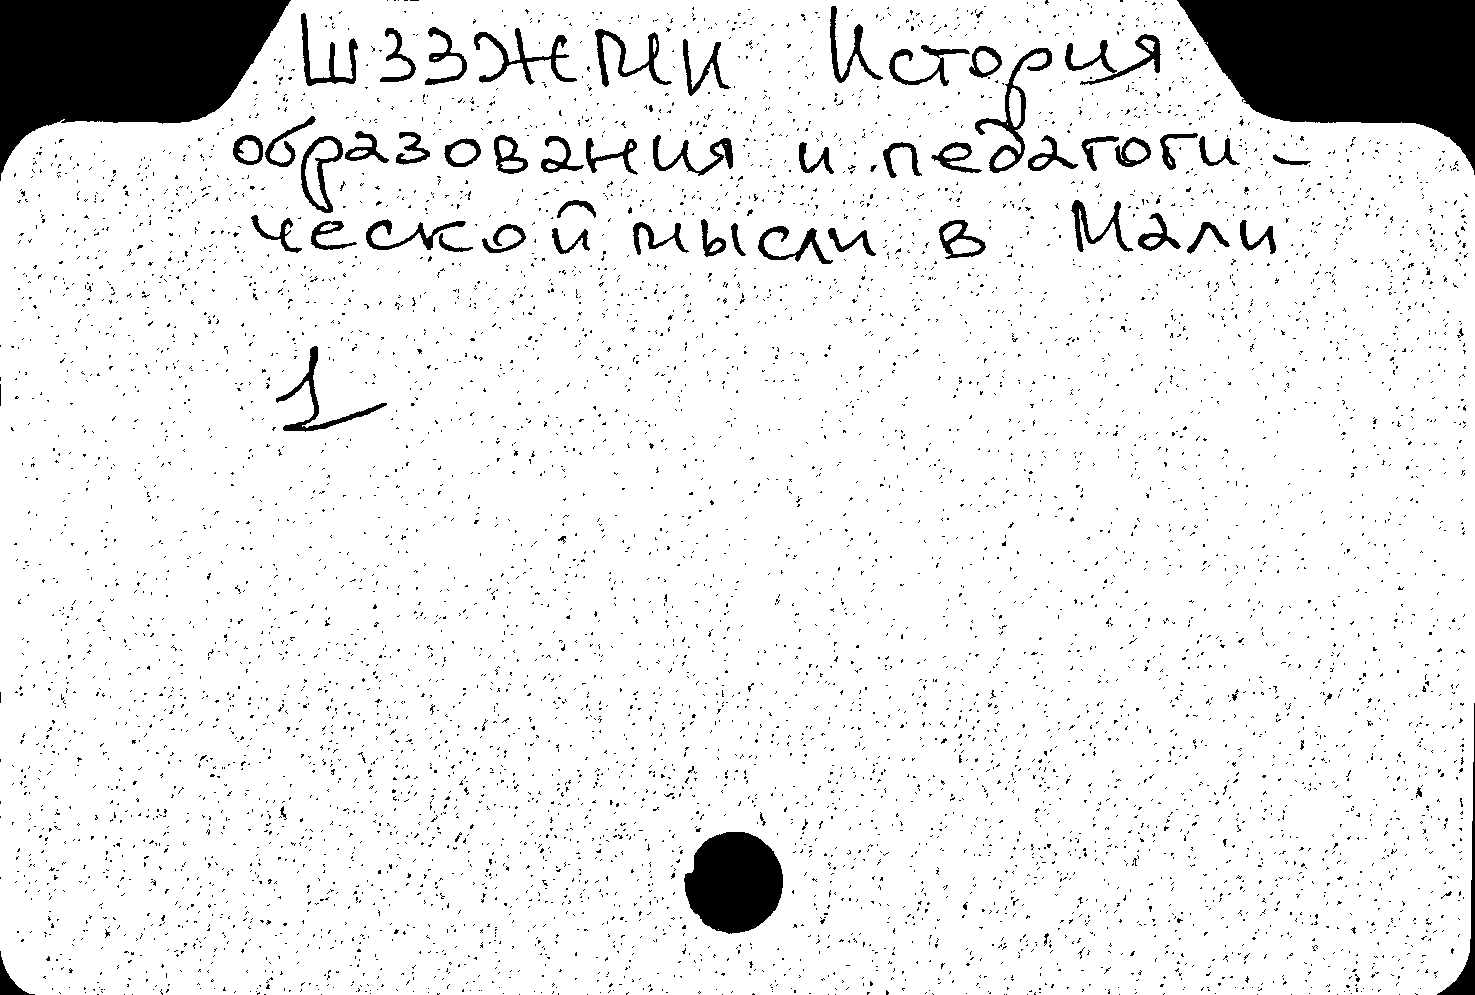 Ш33ЭЖМИ История
образования и педагоги-
ческой мысли в Мали
1